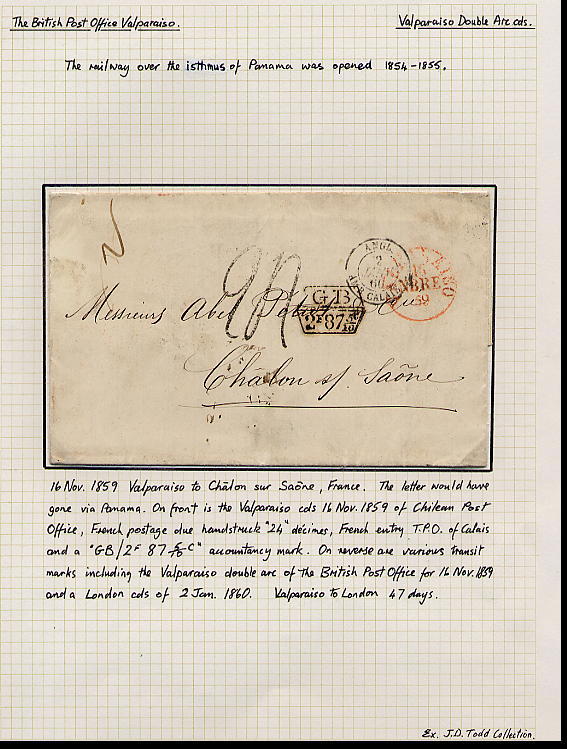 The British Post Office Valparaiso. Valparaiso Double Arc cds.
The railway over the isthmus of Panama was opened 1854-1855.
ANGL.
2
60
CALAIS
59
GB
2F 87
24
Messieurs Abel
Châlon s/ Saône
16 Nov. 1859 Valparaiso to Châlon sur Saône, France. The letter would have
gone via Panama. On front is the Valparaiso cds 16 Nov. 1859 of Chilean Post
Office, French postage due handstruck "24" décimes, French entry T.P.O. of Calais
and a "GB/2F 87 5/10 C" accountancy mark. On reverse are various transit
marks including the Valparaiso double arc of the British Post Office for 16 Nov. 1859
and a London cds of 2 Jan. 1860. Valparaiso to London 47 days.
Ex. J.D. Todd Collection.